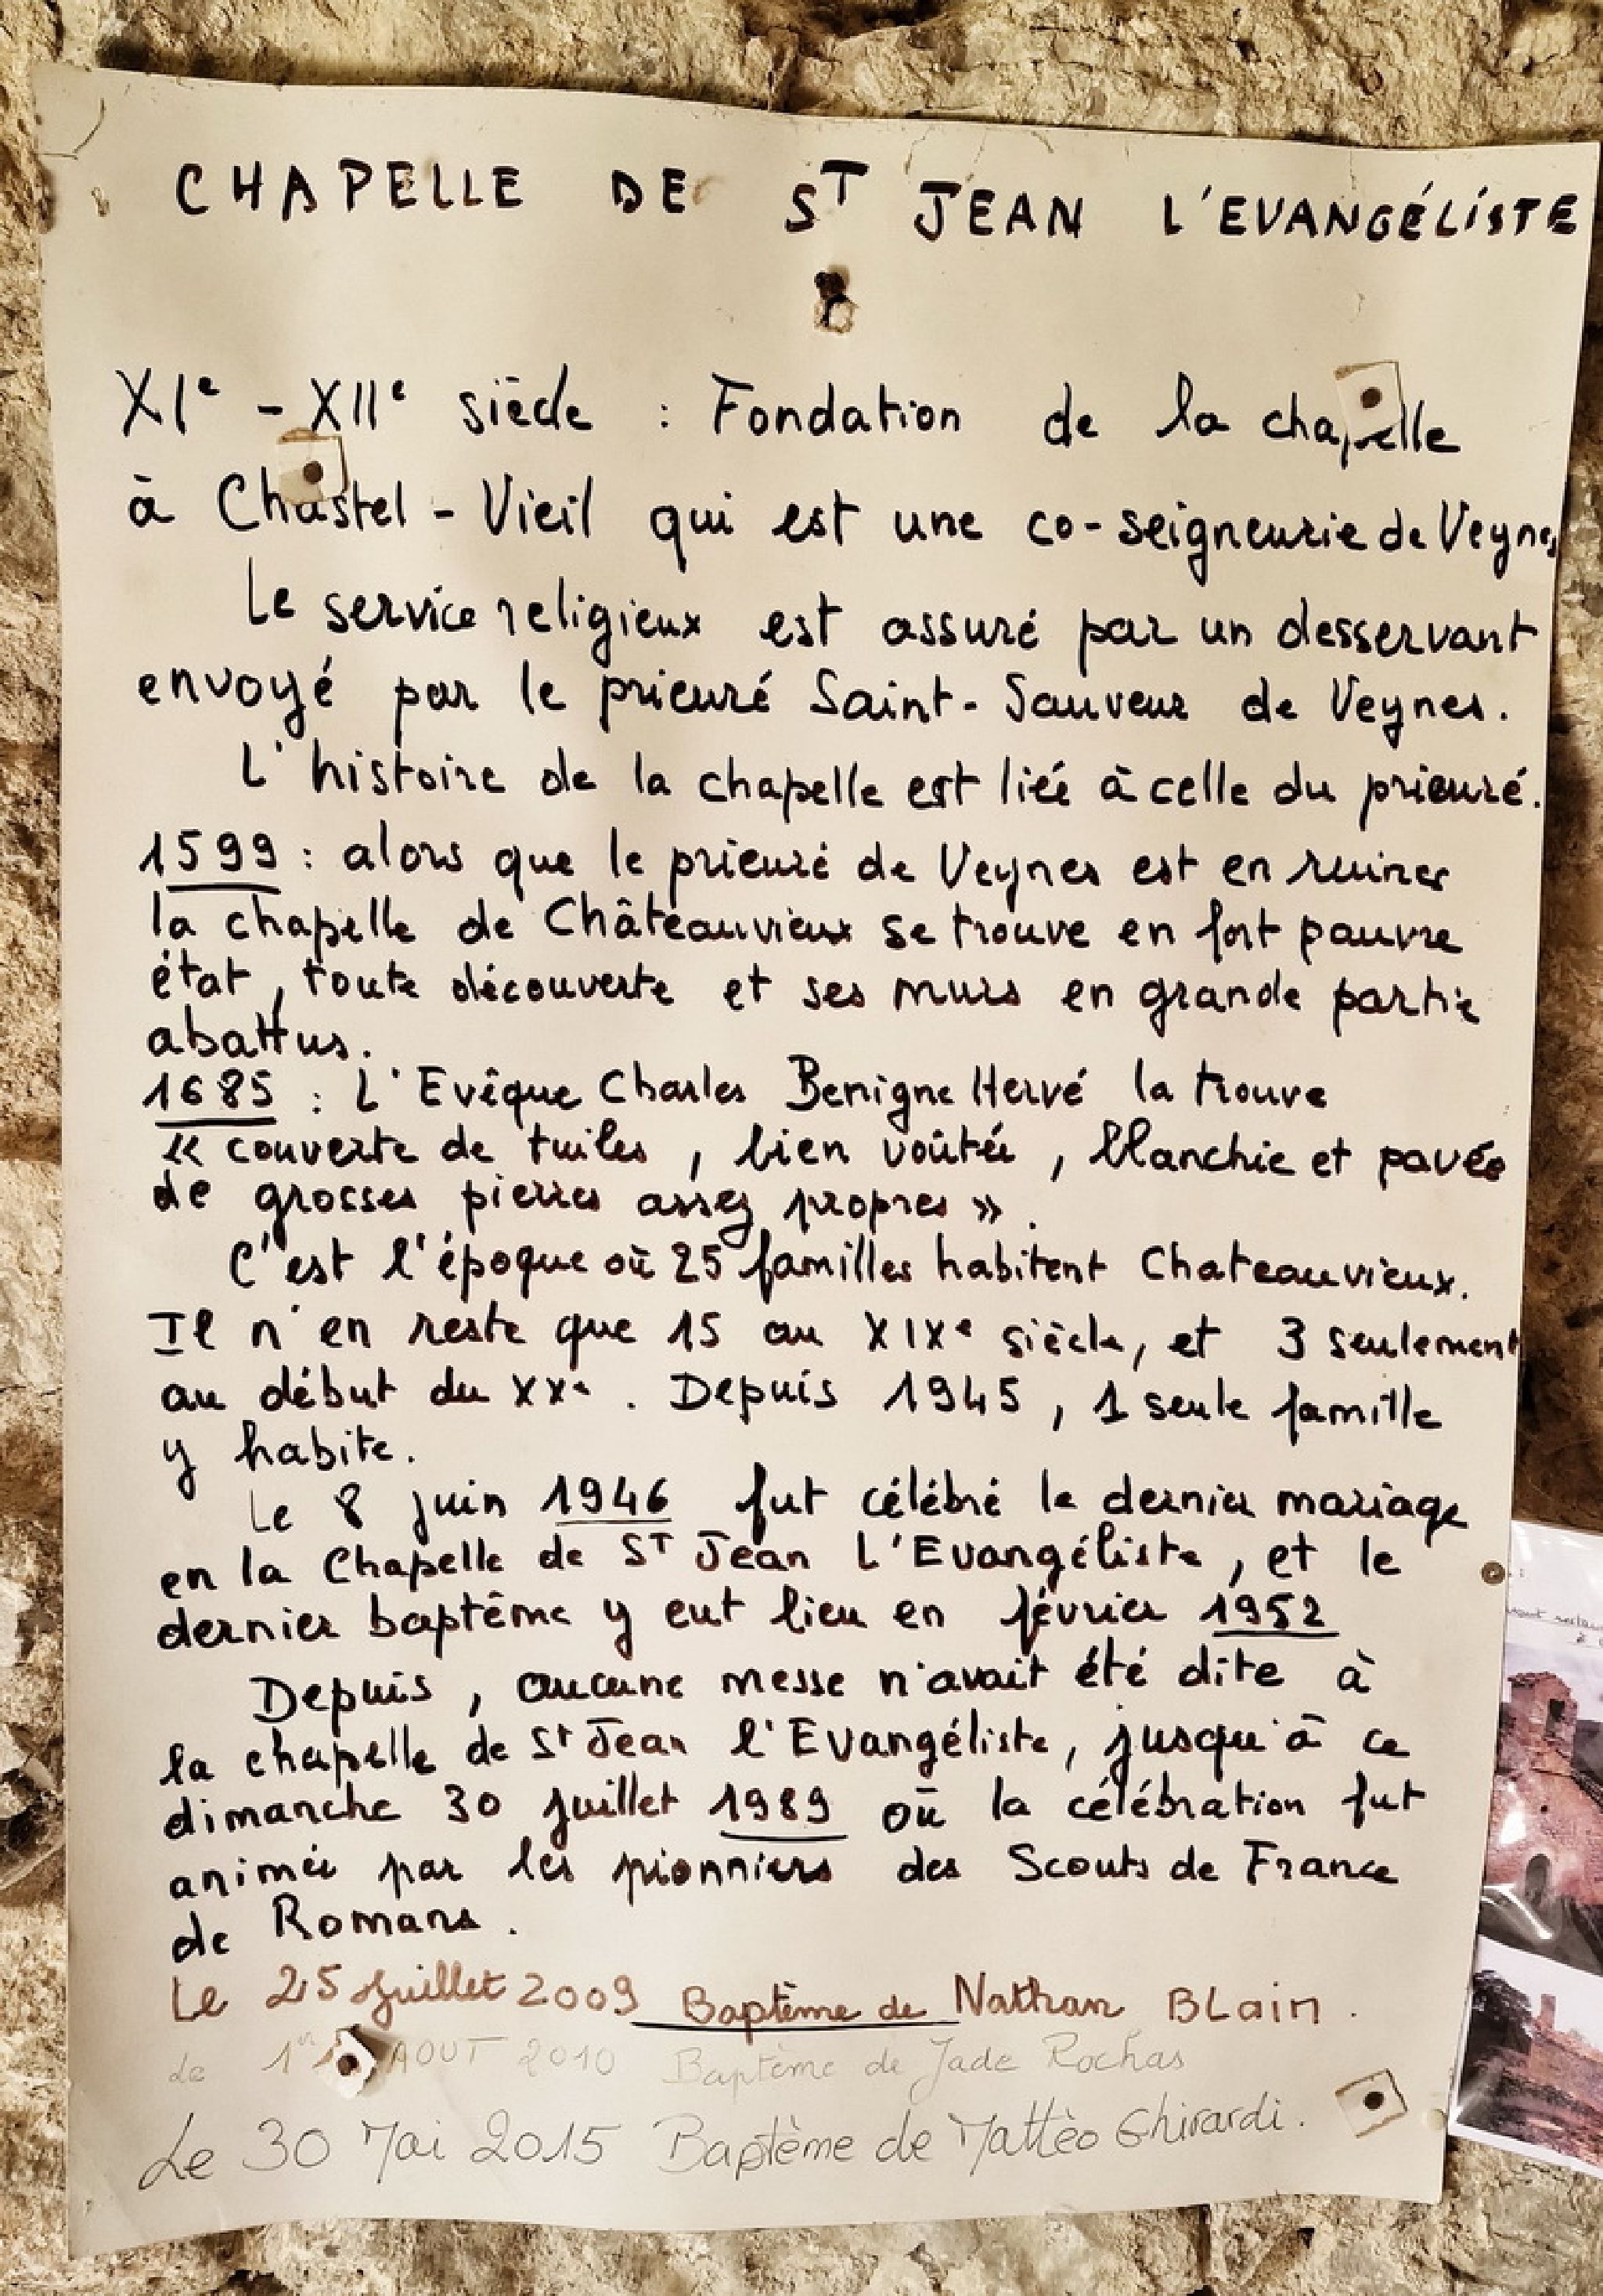 CHAPELLE DE ST JEAN L'EVANGÉLISTE
XIe - XIIe siècle : Fondation de la chapelle
à Chastel - Vieil qui est une co-seigneurie de Veynes
Le service religieux est assuré par un desservant
envoyé par le prieuré Saint-Sauveur de Veynes.
L'histoire de la chapelle est liée à celle du prieuré.
1599 : alors que le prieuré de Veynes est en ruines
la chapelle de Châteauvieux se trouve en fort pauvre
état, toute découverte et ses murs en grande partie
abattus.
1685 : L'Evêque Charles Benigne Hervé la trouve
« couverte de tuiles, bien voûtée, blanchie et pavée
de grosses pierres assez propres ».
C'est l'époque où 25 familles habitent Chateauvieux.
Il n'en reste que 15 au XIXe siècle, et 3 seulement
au début du XXe. Depuis 1945, 1 seule famille
y habite.
Le 8 juin 1946 fut célébré le dernier mariage
en la Chapelle de ST Jean L'Evangéliste, et le
dernier baptême y eut lieu en février 1952
Depuis, aucune messe n'avait été dite à
la chapelle de St Jean l'Evangéliste, jusqu'à ce
dimanche 30 juillet 1989 où la célébration fut
animée par les pionniers des Scouts de France
de Romans.
Le 25 Juillet 2009 Baptême de Nathan BLain.
Le 1er AOUT 2010 Baptême de Jade Rochas
Le 30 Mai 2015 Baptème de Mattèo Ghirardi.